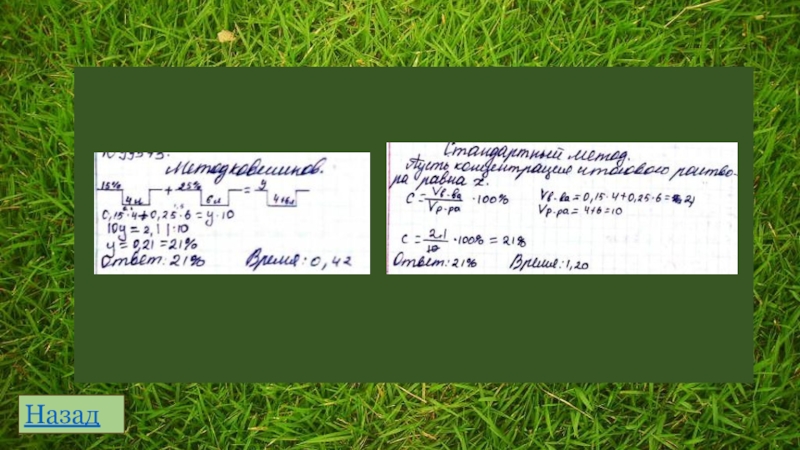 Метод ковшиков.
15% + 25% = y
4л 6л 4+6л
0,15·4+0,25·6=y·10
10y = 2,1 |:10
y = 0,21 = 21%
Ответ: 21% Время: 0,42
Стандартный метод.
Пусть концентрация итогового раство-
ра равна x.
C = Vв-ва / Vр-ра · 100% Vв-ва = 0,15·4+0,25·6 = 2,1
Vр-ра = 4+6=10
C = 2,1 / 10 · 100% = 21%
Ответ: 21% Время: 1,20
Назад